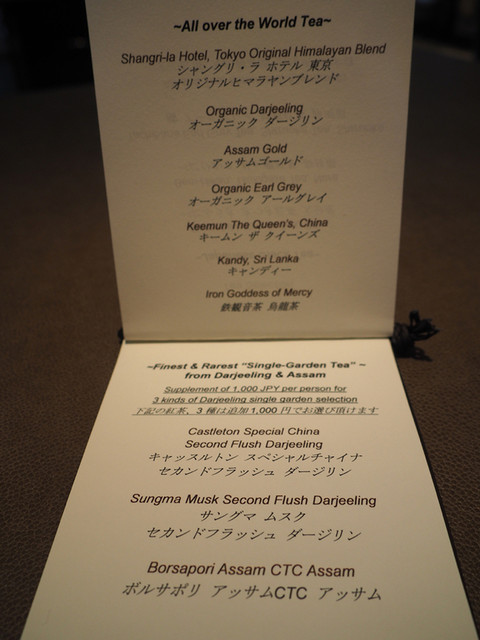 ~All over the World Tea~
Shangri-la Hotel, Tokyo Original Himalayan Blend
シャングリ・ラ ホテル 東京
オリジナルヒマラヤンブレンド
Organic Darjeeling
オーガニック ダージリン
Assam Gold
アッサムゴールド
Organic Earl Grey
オーガニック アールグレイ
Keemun The Queen's, China
キームン ザ クイーンズ
Kandy, Sri Lanka
キャンディー
Iron Goddess of Mercy
鉄観音茶 烏龍茶
~Finest & Rarest "Single-Garden Tea" ~
from Darjeeling & Assam
Supplement of 1,000 JPY per person for
3 kinds of Darjeeling single garden selection
下記の紅茶、3 種は追加1,000 円でお選び頂けます
Castleton Special China
Second Flush Darjeeling
キャッスルトン スペシャルチャイナ
セカンドフラッシュ ダージリン
Sungma Musk Second Flush Darjeeling
サングマ ムスク
セカンドフラッシュ ダージリン
Borsapori Assam CTC Assam
ボルサポリ アッサムCTC アッサム